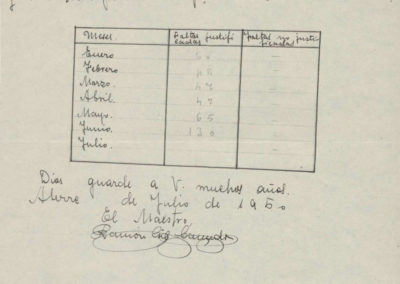 Meses. Faltas justifi Faltas no justi
cadas ficadas
Enero 50 —
Febrero 45 —
Marzo. 47 —
Abril. 47 —
Mayo. 65 —
Junio. 130 —
Julio. —
Dios guarde a V. muchos años.
de Julio de 1950
El Maestro,
Ramón